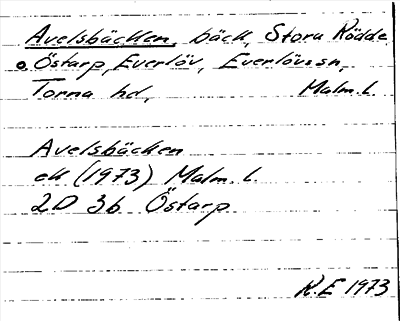 Avelsbäcken, bäck, Stora Rödde
o. Östarp, Everlöv, Everlövs sn,
Torna hd, Malm. L.
Avelsbäcken
ek (1973) Malm. L.
2D 3b Östarp
K.E 1973